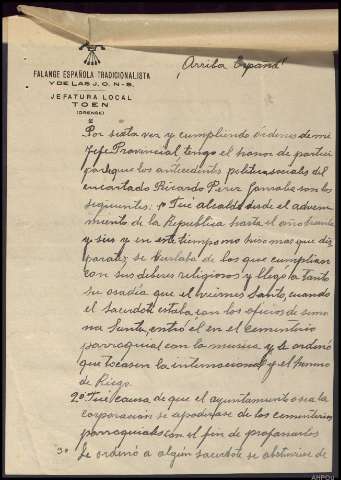 ¡Arriba España!
FALANGE ESPAÑOLA TRADICIONALISTA
Y DE LAS J. O. N-S.
JEFATURA LOCAL
TOEN
(ORENSE)
Por sixta vez y cumpliendo órdenes de mi
Jefe Provincial, tengo el honor de partici
parle que los antecedentes politico sociales del
encartado Ricardo Perez Gonzalo son los
siguientes: 1º Fué alcalde desde el adveni
miento de la Republica hasta el año treinta
y seis y en este tiempo no hizo mas que dis
parates se burlaba de los que cumplian
con sus deberes religiosos y llegó a tanto
su osadía que el viernes Santo, cuando
el sacerdote estaba con los oficios de sema
na Santa, entró el en el cementerio
parroquial con la musica y le ordenó
que tocasen la internacional y el himno
de Riego.
2º Fué causa de que el ayuntamiento o sea la
corporacion se apoderase de los cementerios
parroquiales con el fin de profanarlos
3º Se ordenó a algún sacerdote se abstuviese de
AHPOU